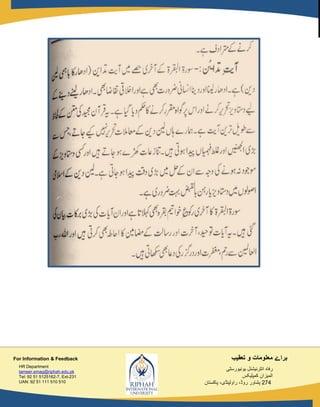 کرنے کے مترادف ہے۔
آیتِ تداین:- سورۃ البقرۃ کے آخری حصے میں آیت تداین (ادھار کا باہمی لین
دین) ہے۔ ادھار لینا اور دینا انسانی ضرورت بھی ہے اور اخلاقی تقاضا بھی۔ ادھار لینے دینے کے
لیے دستاویز تحریر کرنے اور اس پر گواہ مقرر کرنے کا حکم دیا گیا ہے۔ یہ قرآن مجید کی متن کے لحاظ
سے طویل ترین آیت ہے۔ ہمارے ہاں لین دین کے معاملات تحریر نہیں کیے جاتے جس سے
بڑی الجھنیں اور غلط فہمیاں پیدا ہوتی ہیں۔ تنازعات کھڑے ہو جاتے ہیں اور کسی دستاویز کے
موجود نہ ہونے کی وجہ سے ان کے حل میں بڑی دقت پیدا ہو جاتی ہے۔ لین دین کے اسلامی
اصولوں میں دستاویز یا رہن بالقبض بہت ضروری ہے۔
سورۃ البقرۃ کا آخری رکوع خواتیم بقرہ بھی کہلاتا ہے اور ان آیات کی بڑی برکات بیان کی
گئی ہیں۔ یہ آیات توحید، آخرت اور رسالت کے مضامین کا احاطہ بھی کرتی ہیں اور اللہ رب
العالمین سے رحم، مغفرت اور درگزر کی دعا بھی سکھاتی ہیں۔
For Information & Feedback
HR Department
tameer.emag@riphah.edu.pk
Tel: 92 51 5125162-7, Ext-231
UAN: 92 51 111 510 510
RIPHAH
INTERNATIONAL
UNIVERSITY
براے معلومات و تعقیب
رفاہ انٹرنیشنل یونیورسٹی
المیزان کمپلیکس
274 پشاور روڈ، راولپنڈی، پاکستان